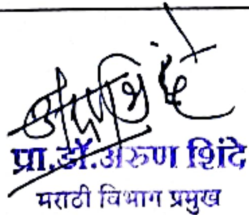 प्रा.डॉ.अरुण शिंदे
मराठी विभाग प्रमुख